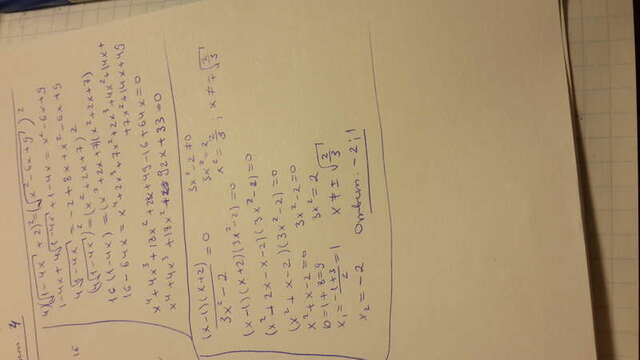 4
16
4) √(1-4x) + 2)² = (√(x²-6x+9))²
1-4x+4√(1-4x)+1-4x = x²-6x+9
4√(1-4x) = -2+8x+x²-6x+9
(4√(1-4x))² = (x²+2x+7)²
16(1-4x) = (x²+2x+7)(x²+2x+7)
16-64x = x⁴+2x³+7x²+2x³+4x²+14x+
+7x²+14x+49
x⁴+4x³+18x²+28x+49-16+64x=0
x⁴+4x³+18x²+92x+33=0
(x-1)(x+2)/(3x²-2) = 0
3x²-2≠0
3x²=2
x²=2/3; x≠±√(2/3)
(x-1)(x+2)(3x²-2)=0
(x²+2x-x-2)(3x²-2)=0
(x²+x-2)(3x²-2)=0
x²+x-2=0 3x²-2=0
D=1+8=9 3x²=2
x₁=(-1+3)/2=1 x≠±√(2/3)
x₂=-2 Ответ. -2; 1